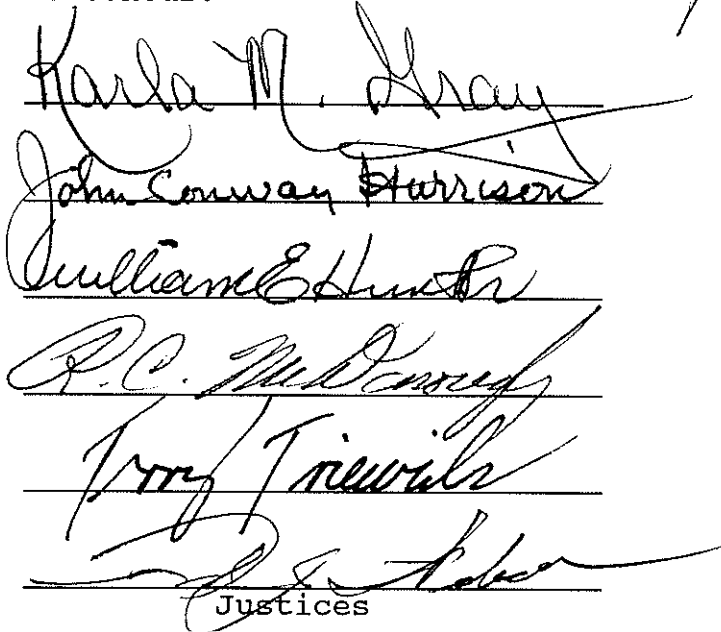 Karla M. Gray
John Conway Harrison
William E Hunt Sr
R. C. McDonough
Terry Trieweiler
Justices